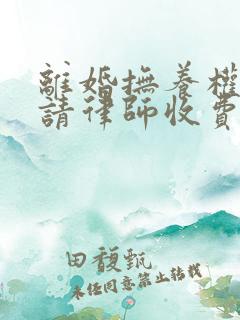 離婚撫養權
請律師收費
田馥甄
未經同意禁止轉載